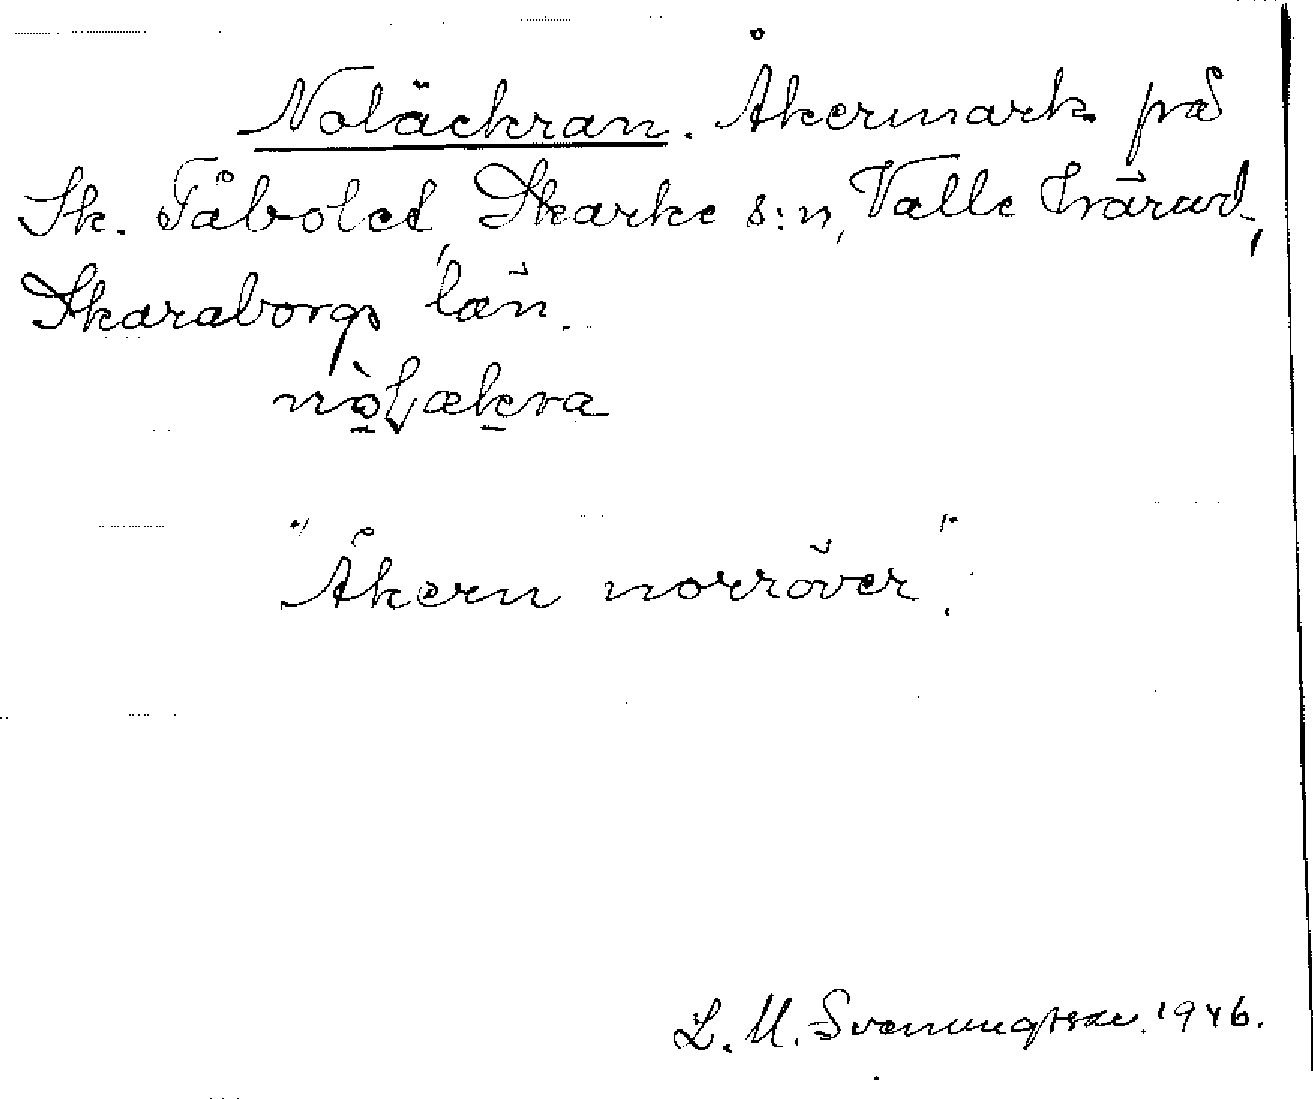 Noläckran. Åkermark på
Sk. Fåbolet, Skarke s:n, Valle härad,
Skaraborgs län.
nòLækra
"Åkern norröver".
L. M. Svenungsson. 1946.